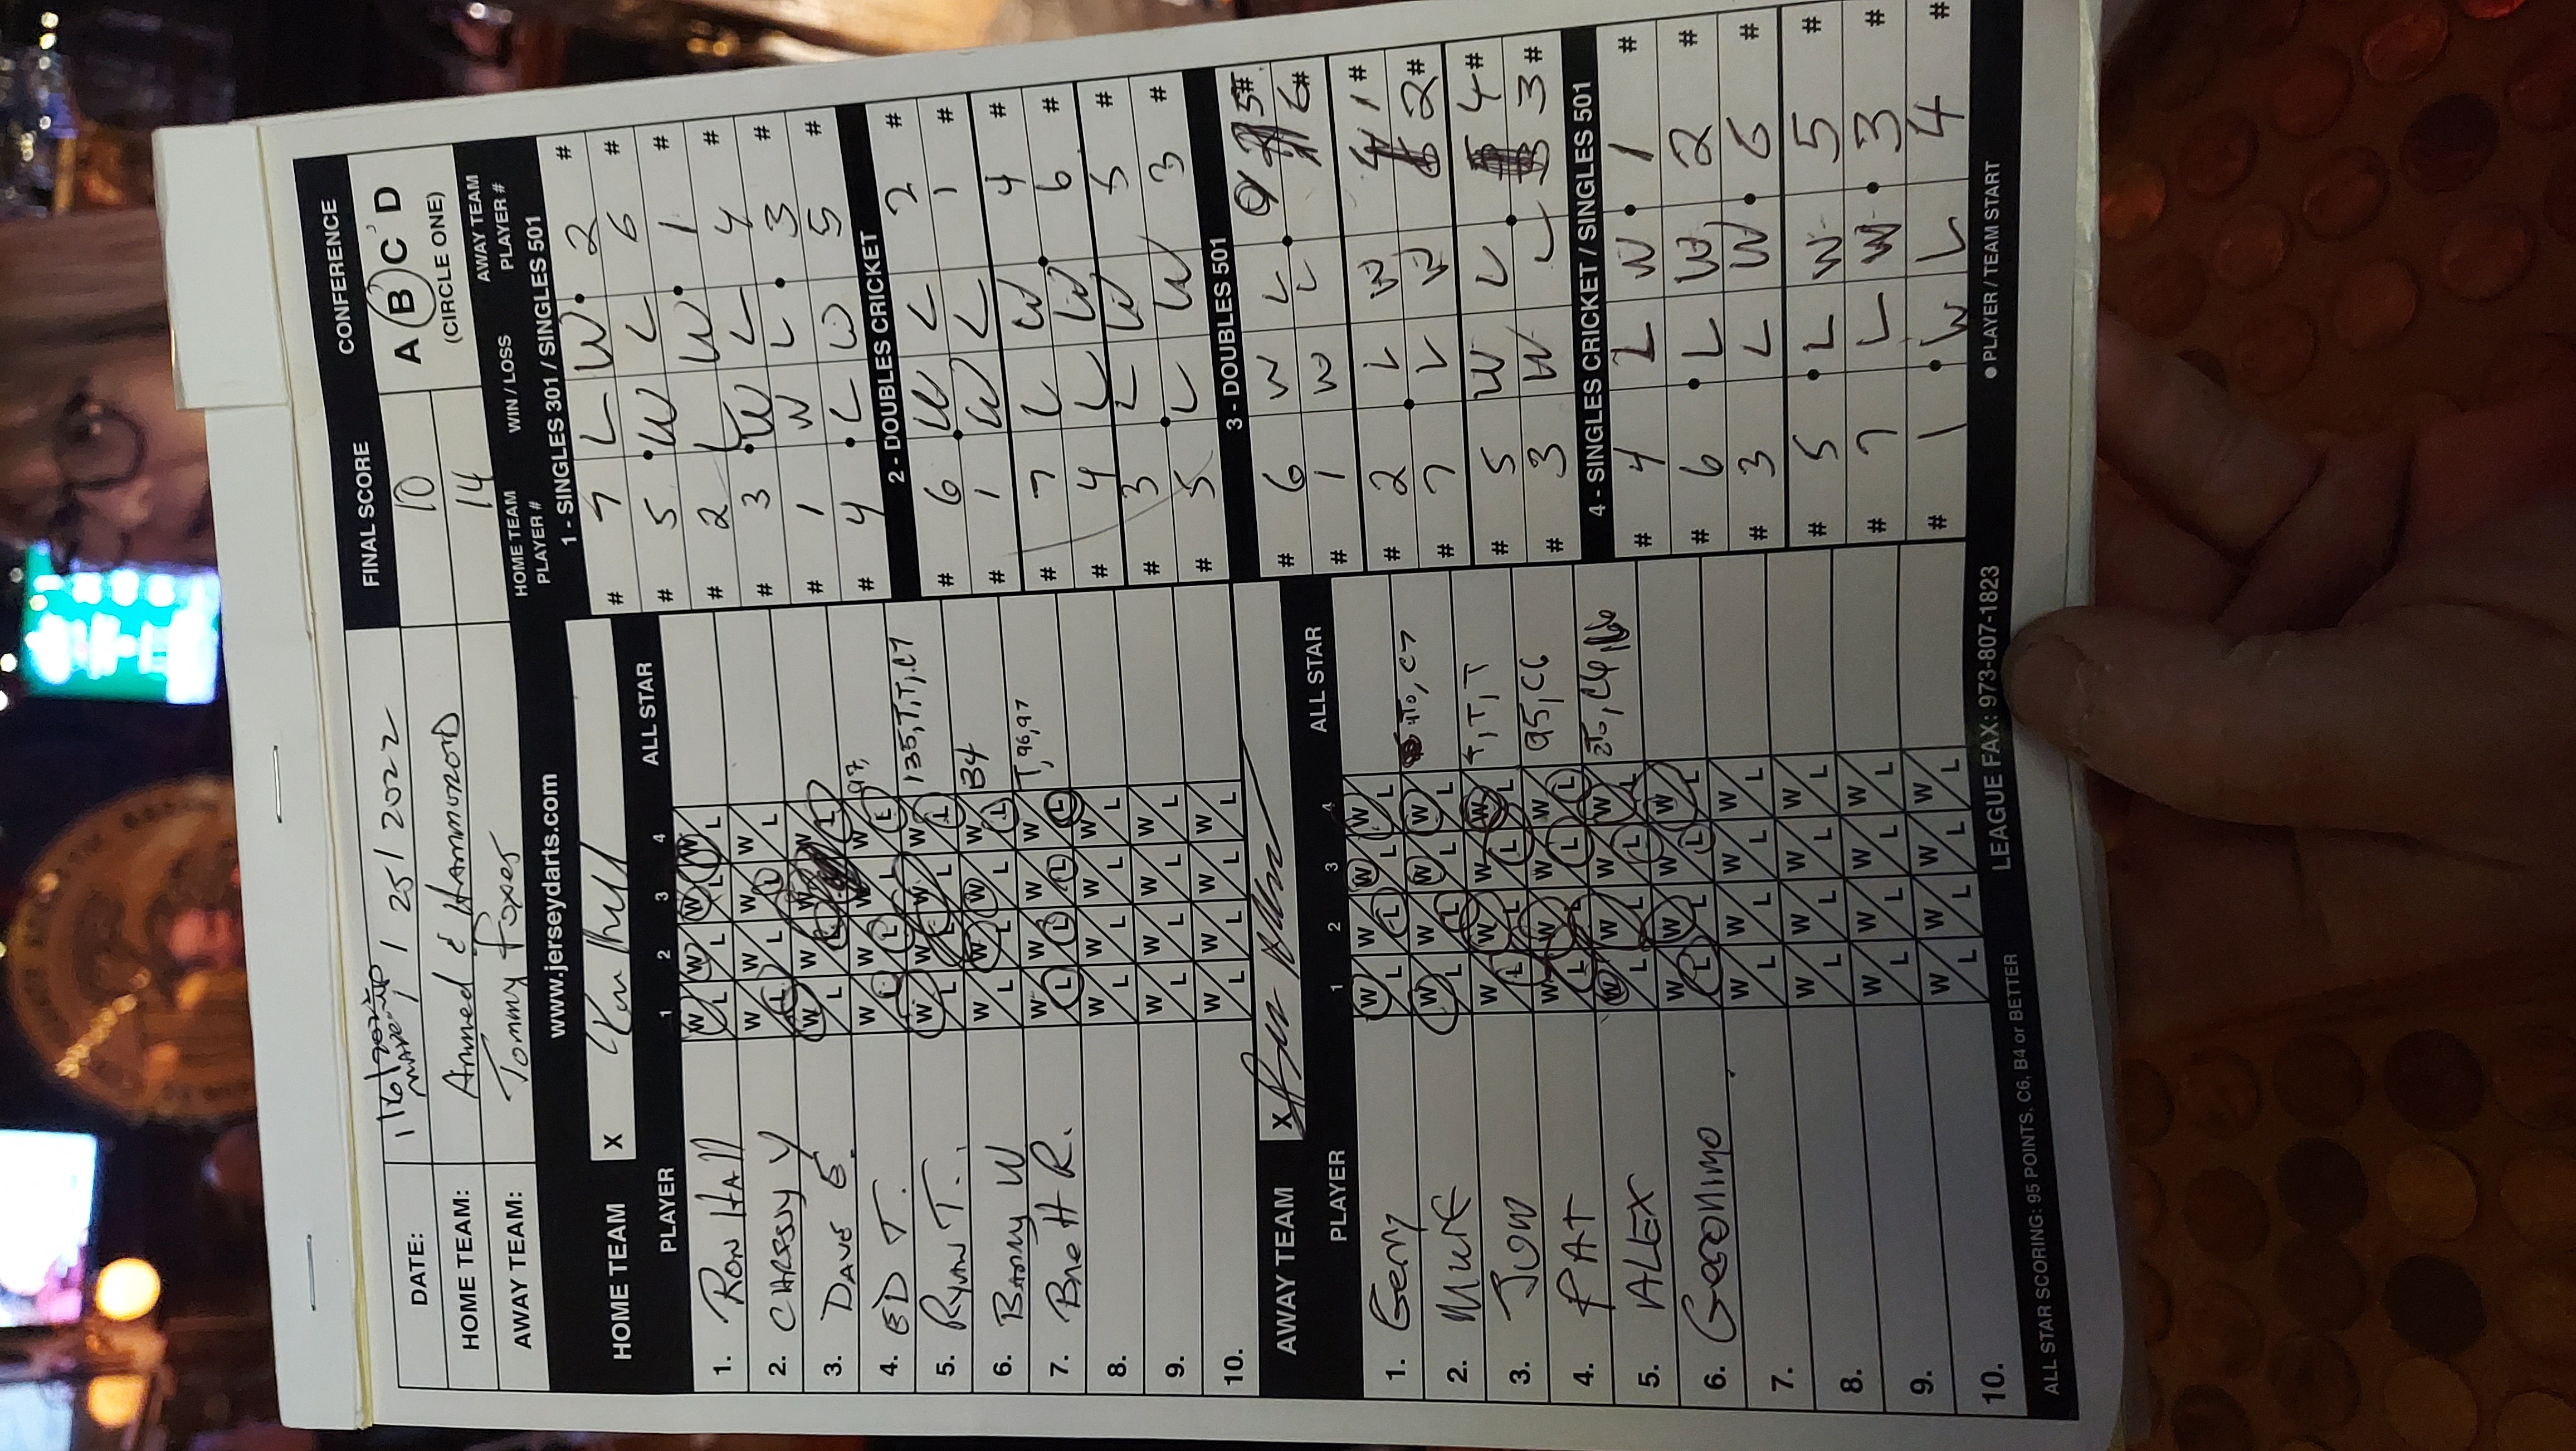 DATE: MAR / 25 / 2022
FINAL SCORE
CONFERENCE
HOME TEAM: Ahmed & Hammorord 10
A B C D
AWAY TEAM: Tommy Foxes 14
(CIRCLE ONE)
www.jerseydarts.com
HOME TEAM X
PLAYER 1 2 3 4 ALL STAR
1. Ron Hall W L W L W L W L
2. CHRISSY V W L W L W L W L
3. DAVE E. W L W L W L W L
4. ED T. W L W L W L W L 97,
5. Ryan T. W L W L W L W L 135,T,T,C7
6. Barry W W L W L W L W L B4
7. R. W L W L W L W L T,96,97
8. W L W L W L W L
9. W L W L W L W L
10. W L W L W L W L
AWAY TEAM X
PLAYER 1 2 3 4 ALL STAR
1. Gerry W L W L W L W L , C7
2. Murf W L W L W L W L T,T,T
3. JON W L W L W L W L 95,C6
4. PAT W L W L W L W L
5. ALEX W L W L W L W L
6. Geronimo W L W L W L W L
7. W L W L W L W L
8. W L W L W L W L
9. W L W L W L W L
10. W L W L W L W L
HOME TEAM PLAYER # WIN / LOSS AWAY TEAM PLAYER #
1 - SINGLES 301 / SINGLES 501
# 7 L W 2 #
# 5 W L 6 #
# 2 L W 1 #
# 3 W L 4 #
# 1 W L 3 #
# 4 L W 5 #
2 - DOUBLES CRICKET
# 6 W L 2 #
# 1 W L 1 #
# 7 L W 4 #
# 4 L W 6 #
# 3 L W 5 #
# 5 L W 3 #
3 - DOUBLES 501
# 6 W L 5 #
# 1 W L 6 #
# 2 L W 1 #
# 7 L W 2 #
# 5 W L 4 #
# 3 W L 3 #
4 - SINGLES CRICKET / SINGLES 501
# 4 L W 1 #
# 6 L W 2 #
# 3 L W 6 #
# 5 L W 5 #
# 7 L W 3 #
# 1 W L 4 #
ALL STAR SCORING: 95 POINTS, C6, B4 or BETTER
LEAGUE FAX: 973-807-1823
● PLAYER / TEAM START